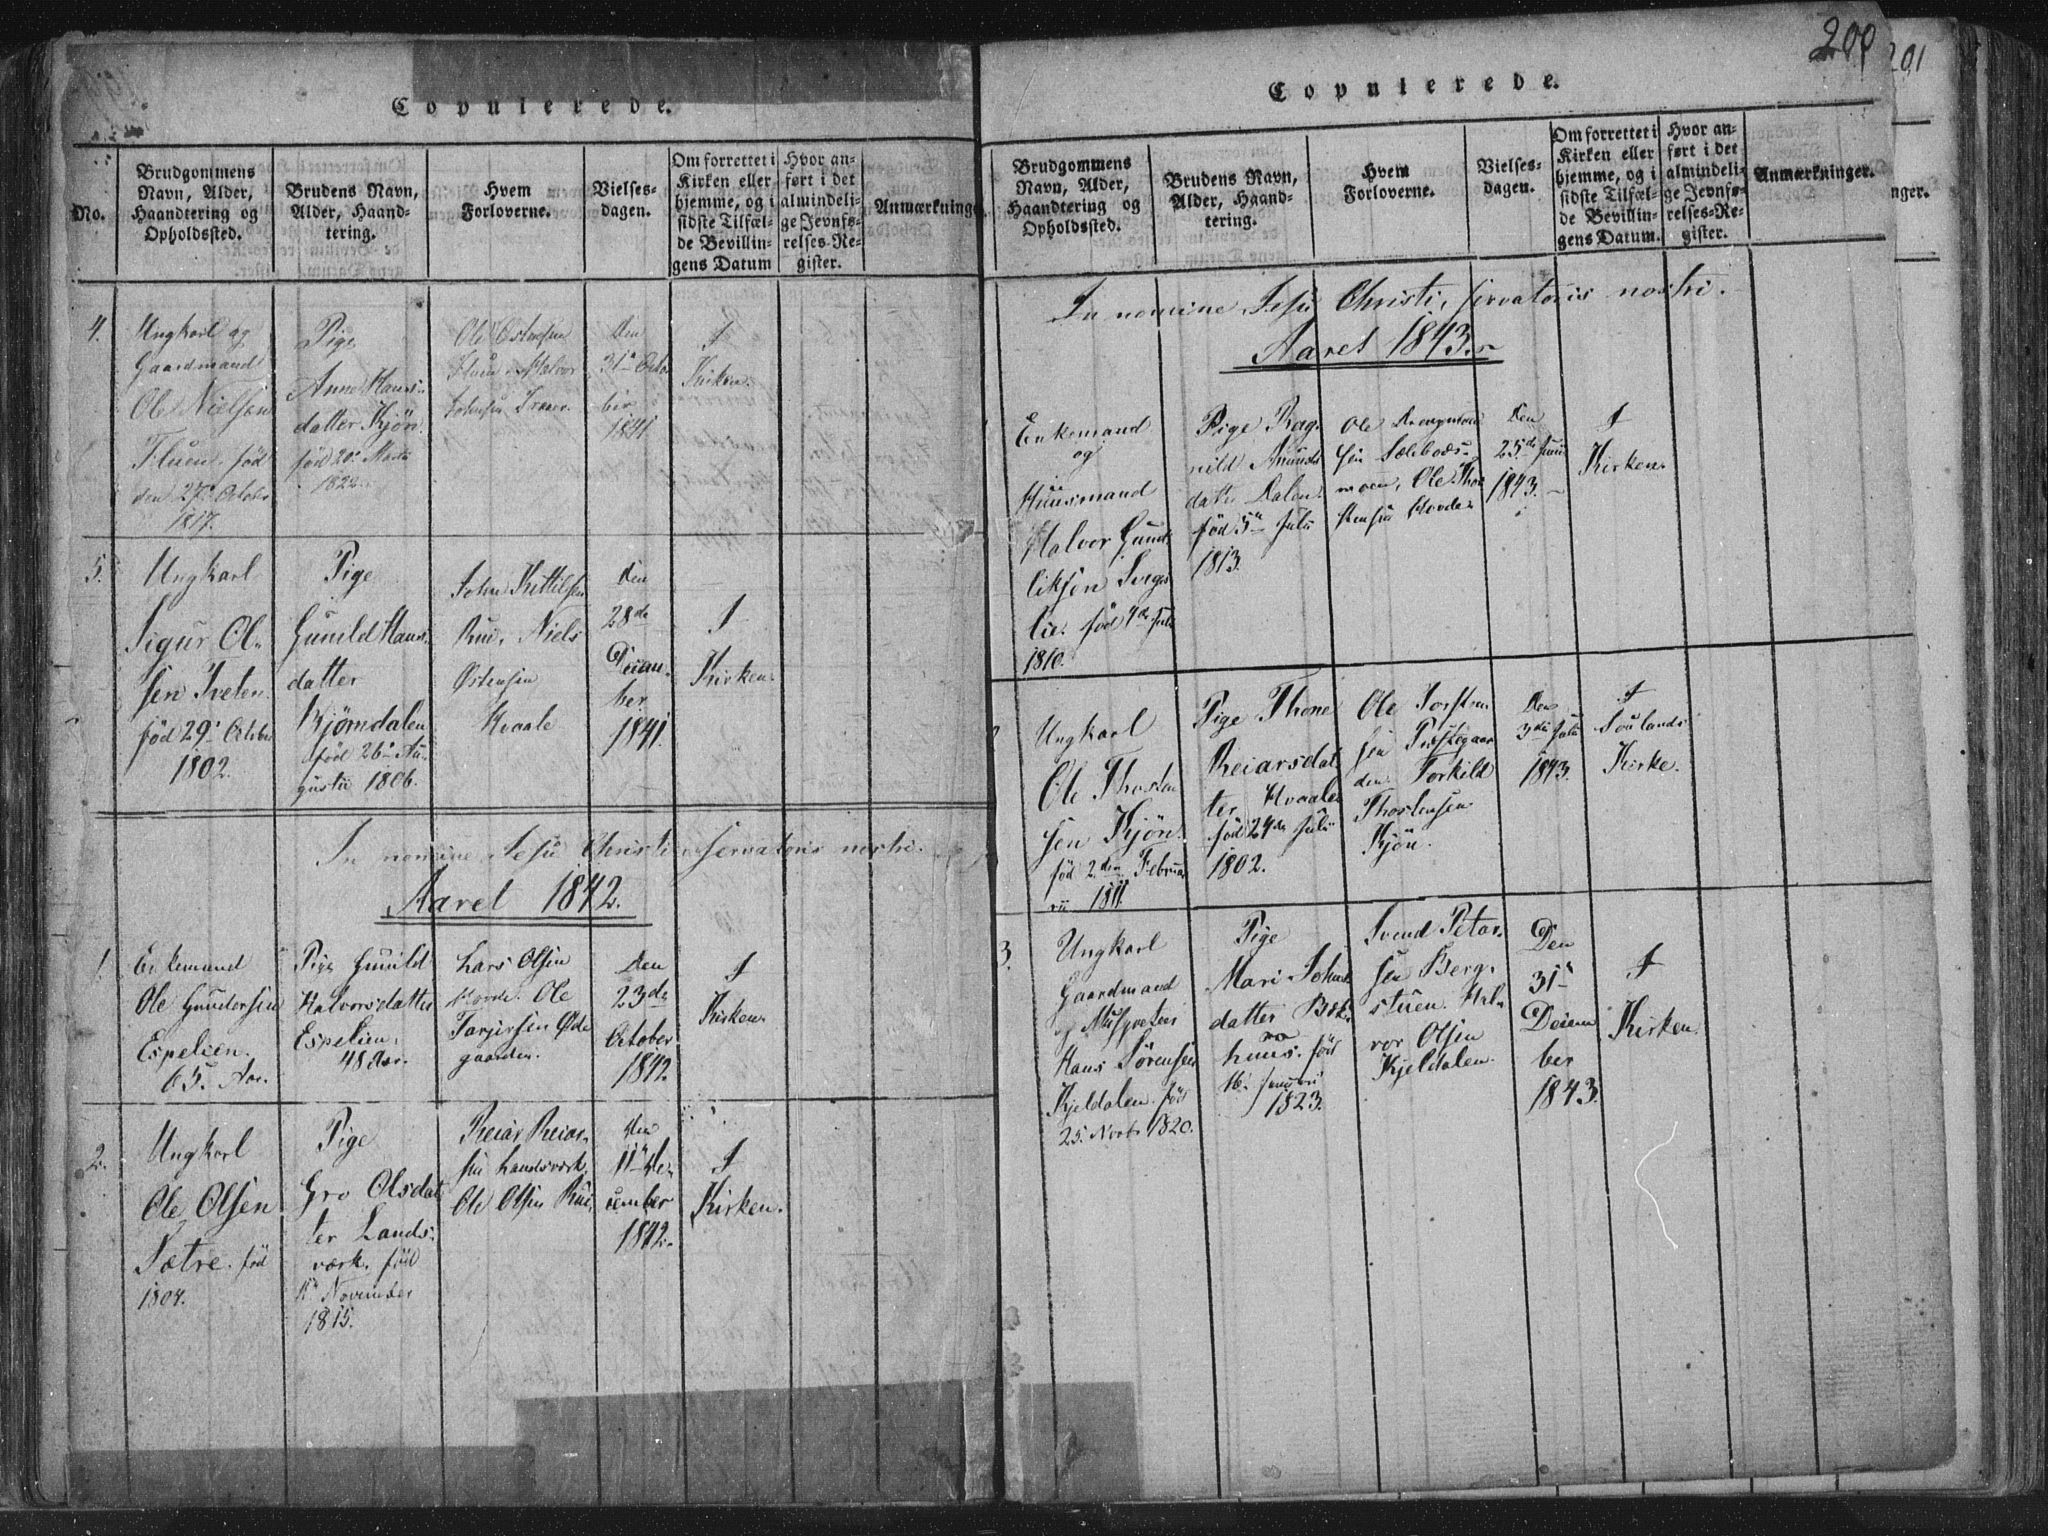 Copulerede.
No.
Brudgommens
Navn, Alder,
Haandtering og
Opholdssted.
Brudens Navn,
Alder, Haand-
tering.
Hvem
Forloverne.
Vielses-
dagen.
Om forrettet i
Kirken eller
hjemme, og i
sidste Tilfæl-
de Bevillin-
gens Datum
Hvor an-
ført i det
almindeli-
ge Jevnfø-
relses-Re-
gister.
Anmærkninger
4.
Ungkarl og
Gaardmand
Ole Nielsen
Fluen. fød
den 27de October
1817.
Pige
Anne Hans-
datter Kjøn.
fød 20de Martii
1822.
Ole Østensen
Halvor
Johnsen
Den
31te Octo-
ber
1841
I
Kirken.
5.
Ungkarl
Sigur Ol-
sen Tveten
fød 29de October
1802.
Pige
Gunild Hans-
datter
Bjørndalen
fød 26de Au-
gustii 1806.
John Kittilsen
Rui, Niels
Østensen
Hvaale
Den
28de
Decem-
ber
1841.
I
Kirken.
In nomine Jesu Christi servatoris nostri.
Aaret 1842.
1.
Enkemand
Ole Gundersen
Espelien.
65. Aar.
Pige Gunild
Halvorsdatter
Espelien.
48 Aar.
Lars Olsen
Hovde. Ole
Tarjersen Øde-
gaarden.
Den
23de
October
1842.
I
Kirken.
2.
Ungkarl
Ole Olsen
Sætre. fød
1804.
Pige
Gro Olsdat-
ter Lands-
værk. fød
November
1815.
Reiar Reiar-
sen Landsværk.
Ole Olsen Rui.
den
11te De-
cember
1842.
I
Kirken.
200
201
Copulerede.
Brudgommens
Navn, Alder,
Haandtering og
Opholdssted.
Brudens Navn,
Alder, Haand-
tering.
Hvem
Forloverne.
Vielses-
dagen.
Om forrettet i
Kirken eller
hjemme, og i
sidste Tilfæl-
de Bevillin-
gens Datum.
Hvor an-
ført i det
almindeli-
ge Jevnfø-
relses-Re-
gister.
Anmærkninger.
nger.
In nomine Jesu Christi, servatoris nostri.
Aaret 1843.
Enkemand
og
Huusmand
Halvor Gund-
liksen Sveigs-
lie. fød 4de Julii
1810.
Pige Rag-
nild Amunds-
datter Dalen.
fød 5te Julii
1813.
Ole Drengman-
sen Sælebods-
moen, Ole Thor-
stensen Hovde.
Den
25de Junii
1843.
I
Kirken.
Ungkarl
Ole Thosten-
sen Kjøn.
fød 2den Februa-
rii 1811.
Pige Thone
Reiarsdat-
ter Hvaale
fød 24de Julii
1802.
Ole Torsten-
sen Præstegaar-
den. Torkild
Thorstensen
Kjøn.
Den
3die Julii
1843.
I
Soulands
Kirke.
3.
Ungkarl
Gaardmand
Hans Sørensen
Kjeldalen. fød
25. Novbr 1820.
Pige
Mari Johns-
datter
huus. fød
16. Januarii
1823.
Svend Peter-
sen Berg-
stuen. Hal-
vor Olsen
Kjeldalen.
Den
31te
Decem-
ber
1843.
I
Kirken.